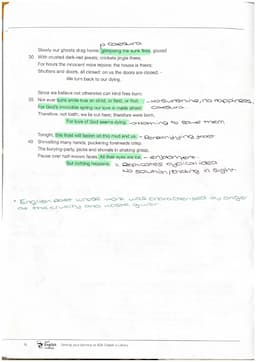 → caesura
Slowly our ghosts drag home: glimpsing the sunk fires, glozed
30 With crusted dark-red jewels; crickets jingle there;
For hours the innocent mice rejoice: the house is theirs;
Shutters and doors, all closed: on us the doors are closed, -
We turn back to our dying.
Since we believe not otherwise can kind fires burn;
35 Nor ever suns smile true on child, or field, or fruit. - No sunshine, no happiness.
For God's invincible spring our love is made afraid; caesura
Therefore, not loath, we lie out here; therefore were born,
For love of God seems dying. - nothing to save them
Tonight, this frost will fasten on this mud and us, - Personifying frost
40 Shrivelling many hands, puckering foreheads crisp.
The burying-party, picks and shovels in shaking grasp,
Pause over half-known faces. All their eyes are ice, - enjambment
But nothing happens. = Replicates cyclical idea
No solution/ending in sight.
* English poet whose work was characterised by anger
at the cruelty and waste of war
English